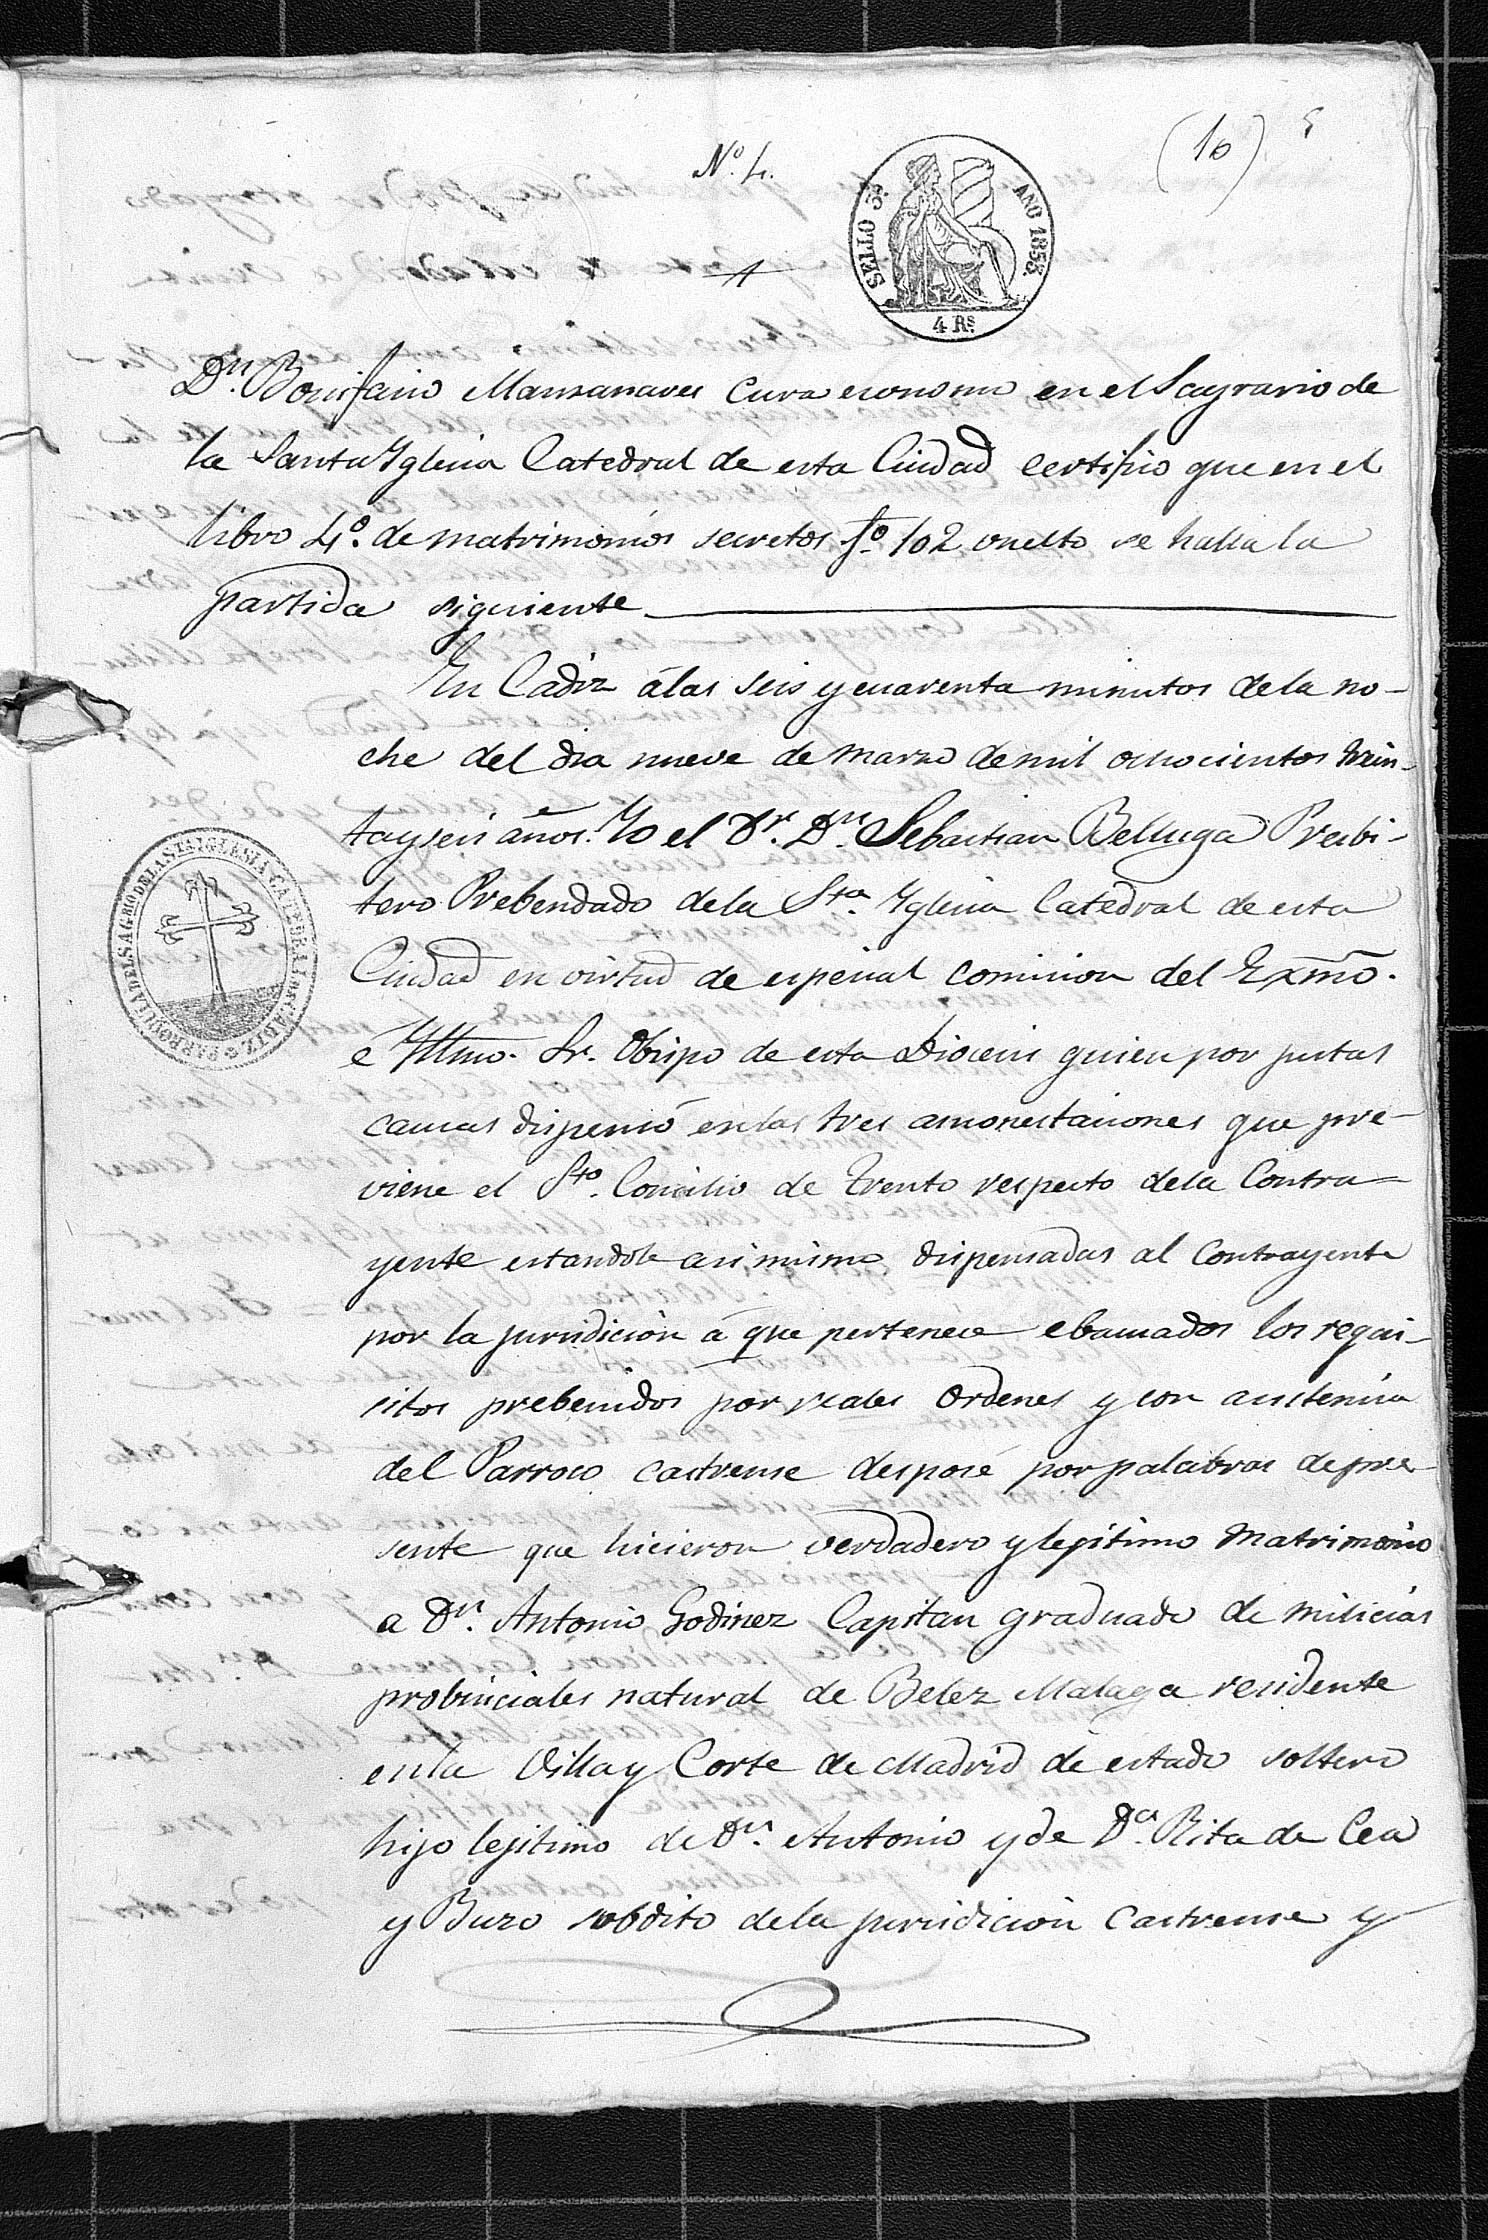 (10)
Nº. 4.
SELLO 3º. AÑO 1858.
4 Rs.
Dn. Bonifacio Manzanares Cura economo en el Sagrario de
la Santa Yglecia Catedral de esta Ciudad certifico que en el
libro 4º. de matrimonios secretos fº. 102 vuelto se halla la
partida siguiente
En Cadiz á las seis y cuarenta minutos de la no-
che del dia nueve de marzo de mil ochocientos trein-
ta y seis años. Yo el Dr. Dn. Sebastian Belluga Presbi-
tero Prebendado de la Sta. Yglecia Catedral de esta
Ciudad en virtud de especial comicion del Exmo.
é Yltmo. Sr. Obispo de esta Diocecis quien por justas
causas dispensó en las tres amonestaciones que pre-
viene el Sto. Concilio de Trento respecto de la Contra=
yente estandole asi mismo dispensadas al Contrayente
por la juridicion á que pertenece ebacuados los requi-
sitos prebenidos por reales Ordenes y con asistencia
del Parroco castrense desposé por palabras de pre-
sente que hicieron verdadero y legitimo Matrimonio
a Dn. Antonio Godinez Capitan graduado de milicias
probinciales natural de Belez Malaga residente
en la Villa y Corte de Madrid de estado soltero
hijo lejitimo de Dn. Antonio y de Dª. Rita de Cea
y Buzo subdito de la juridicion Castrense y
PARROQUIA DEL SAGRIO DE LA STA IGLESIA CATEDRAL DE CADIZ